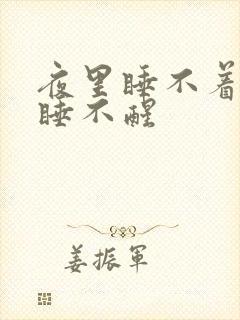 夜里睡不着
睡不醒
姜振军